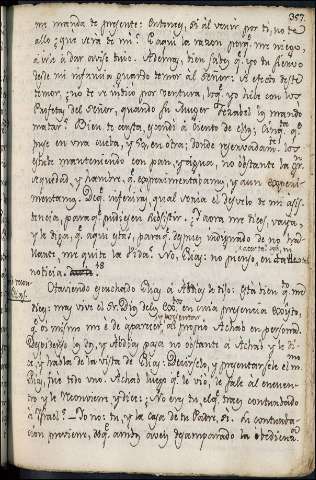 357.
me manda te presente: Entonces, si al venir por ti, no te
allo; que sera de mi? Y aqui la razon porq. me niego,
a ir a dar aviso tuio. Ademas, bien sabes q. yo tu siervo
desde mi infancia guardo temor al Señor: i efecto deste
temor; no te se indicó por ventura, loq. yo hice con los
Profetas del Señor, quando su Muger Jezabel los mandó
matar? Bien te consta, escondi a ciento de ellos: Cinq.ta q.
puse en una cueba, y 50, en otra; donde reservadam.te los
estube manteniendo con pan, y agua, no obstante la gr.
sequedad, y hambre, q. experimentabamos, y aun experi-
mentamos. Deq. inferiras, qual seria el desvelo de mi asis-
tencia, para q. pudiesen subsistir. Y aora me dices, vaya,
y le diga, q. aqui estás, para q. despues indignado de no ha-
llarte, me quite la Vida. No, Elias: no pienso, en darle tal
noticia. 18
Haviendo escuchado Elias á Abdias le dijo: Está bien q. me
dices: mas vive el Sr. Dios de los Exer.tos en cuia presencia Existo,
q. oi mismo me é de aparecer, al propio Achab en persona.
Despidense los dos, y Abdias pasa no obstante á Achab, y le di-
ce, y habla de la vista de Elias: Decirselo, y presentarsele el m.mo
Elias, fue todo uno. Achab luego q. le vió, le sale al encuen-
tro y le reconviene, y dice: No eres tu, el q. traes conturbado
a Israel? = Yo no: tu, y la casa de tu Padre, sí. Su conturba-
cion proviene, deq. ambos aveis desamparado la obediencia